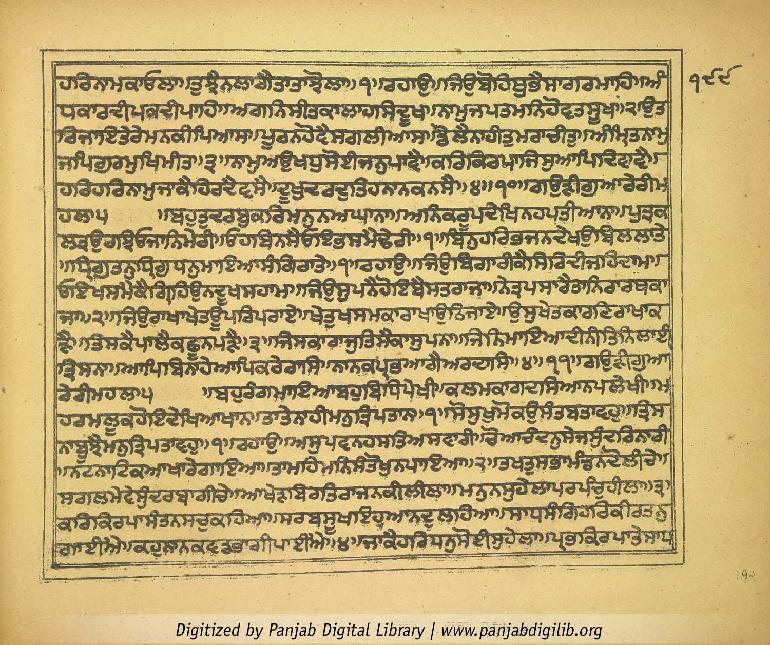 ਹਰਿਨਾਮਕਾਓਲਾ॥ਤੁਝੈਨਲਾਗੈਤਾਤਾਝੋਲਾ॥੧॥ਰਹਾਉ॥ਜਿਉਬੋਹਿਥੁਭੈਸਾਗਰਮਾਹਿ॥ਅੰ
੧੯੯
ਧਕਾਰਦੀਪਕਦੀਪਾਹਿ॥ਅਗਨਿਸੀਤਕਾਲਾਹਸਿਦੂਖ॥ਨਾਮੁਜਪਤਮਨਿਹੋਵਤਸੂਖ॥੨॥ਉਤ
ਰਿਜਾਇਤੇਰੇਮਨਕੀਪਿਆਸ॥ਪੂਰਨਹੋਵੈਸਗਲੀਆਸ॥ਡੋਲੈਨਾਹੀਤੁਮਰਾਚੀਤੁ॥ਅੰਮ੍ਰਿਤਨਾਮੁ
ਜਪਿਗੁਰਮੁਖਿਮੀਤ॥੩॥ਨਾਮੁਅਉਖਧੁਸੋਈਜਨੁਪਾਵੈ॥ਕਰਿਕਿਰਪਾਜਿਸੁਆਪਿਦਿਵਾਵੈ॥
ਹਰਿਹਰਿਨਾਮੁਜਾਕੈਹਿਰਦੈਵਸੈ॥ਦੂਖੁਦਰਦੁਤਿਹਨਾਨਕਨਸੈ॥੪॥੧੦॥ਗਉੜੀਗੁਆਰੇਰੀਮ
ਹਲਾ੫ ॥ਬਹੁਤੁਦਰਬੁਕਰਿਮਨੁਨਅਘਾਨਾ॥ਅਨਿਕਰੂਪਦੇਖਿਨਹਪਤੀਆਨਾ॥ਪੁਤ੍ਰਕ
ਲਤ੍ਰਉਰਝਿਓਜਾਨਿਮੇਰੀ॥ਓਹਬਿਨਸੈਓਇਭਸਮੈਢੇਰੀ॥੧॥ਬਿਨੁਹਰਿਭਜਨਦੇਖਉਬਿਲਲਾਤੇ
॥ਧ੍ਰਿਗੁਤਨੁਧ੍ਰਿਗੁਧਨੁਮਾਇਆਸੰਗਿਰਾਤੇ॥੧॥ਰਹਾਉ॥ਜਿਉਬਿਗਾਰੀਕੈਸਿਰਿਦੀਜਹਿਦਾਮ॥
ਓਇਖਸਮੈਕੈਗ੍ਰਿਹਿਉਨਦੂਖਸਹਾਮ॥ਜਿਉਸੁਪਨੈਹੋਇਬੈਸਤਰਾਜਾ॥ਨੇਤ੍ਰਪਸਾਰੈਤਾਨਿਰਾਰਥਕਾ
ਜਾ॥੨॥ਜਿਉਰਾਖਾਖੇਤਊਪਰਿਪਰਾਏ॥ਖੇਤੁਖਸਮਕਾਰਾਖਾਉਠਿਜਾਏ॥ਉਸੁਖੇਤਕਾਰਣਿਰਾਖਾਕ
ੜੈ॥ਤਿਸਕੈਪਾਲੈਕਛੂਨਪੜੈ॥੩॥ਜਿਸਕਾਰਾਜੁਤਿਸੈਕਾਸੁਪਨਾ॥ਜਿਨਿਮਾਇਆਦੀਨੀਤਿਨਿਲਾਈ
ਤ੍ਰਿਸਨਾ॥ਆਪਿਬਿਨਾਹੇਆਪਿਕਰੇਰਾਸਿ॥ਨਾਨਕਪ੍ਰਭਆਗੈਅਰਦਾਸਿ॥੪॥੧੧॥ਗਉੜੀਗੁਆ
ਰੇਰੀਮਹਲਾ੫ ॥ਬਹੁਰੰਗਮਾਇਆਬਹੁਬਿਧਿਪੇਖੀ॥ਕਲਮਕਾਗਦਸਿਆਨਪਲੇਖੀ॥ਮ
ਹਰਮਲੂਕਹੋਇਦੇਖਿਆਖਾਨ॥ਤਾਤੇਨਾਹੀਮਨੁਤ੍ਰਿਪਤਾਨ॥੧॥ਸੋਸੁਖੁਮੋਕਉਸੰਤਬਤਾਵਹੁ॥ਤ੍ਰਿਸ
ਨਾਬੂਝੈਮਨੁਤ੍ਰਿਪਤਾਵਹੁ॥੧॥ਰਹਾਉ॥ਅਸੁਪਵਨਹਸਤਿਅਸਵਾਰੀ॥ਚੋਆਚੰਦਨੁਸੇਜਸੁੰਦਰਿਨਾਰੀ
॥ਨਟਨਾਟਿਕਆਖਾਰੇਗਾਇਆ॥ਤਾਮਹਿਮਨਿਸੰਤੋਖੁਨਪਾਇਆ॥੨॥ਤਖਤੁਸਭਾਮੰਡਨਦੋਲੀਚੇ॥
ਸਗਲਮੇਵੇਸੁੰਦਰਬਾਗੀਚੇ॥ਆਖੇੜਬਿਰਤਿਰਾਜਨਕੀਲੀਲਾ॥ਮਨੁਨਸੁਹੇਲਾਪਰਪੰਚੁਹੀਲਾ॥੩॥
ਕਰਿਕਿਰਪਾਸੰਤਨਸਚੁਕਹਿਆ॥ਸਰਬਸੂਖਇਹੁਆਨੰਦੁਲਹਿਆ॥ਸਾਧਸੰਗਿਹਰਿਕੀਰਤਨੁ
ਗਾਈਐ॥ਕਹੁਨਾਨਕਵਡਭਾਗੀਪਾਈਐ॥੪॥ਜਾਕੈਹਰਿਧਨੁਸੋਈਸੁਹੇਲਾ॥ਪ੍ਰਭਕਿਰਪਾਤੇਸਾਧ
Digitized by Panjab Digital Library | www.panjabdigilib.org